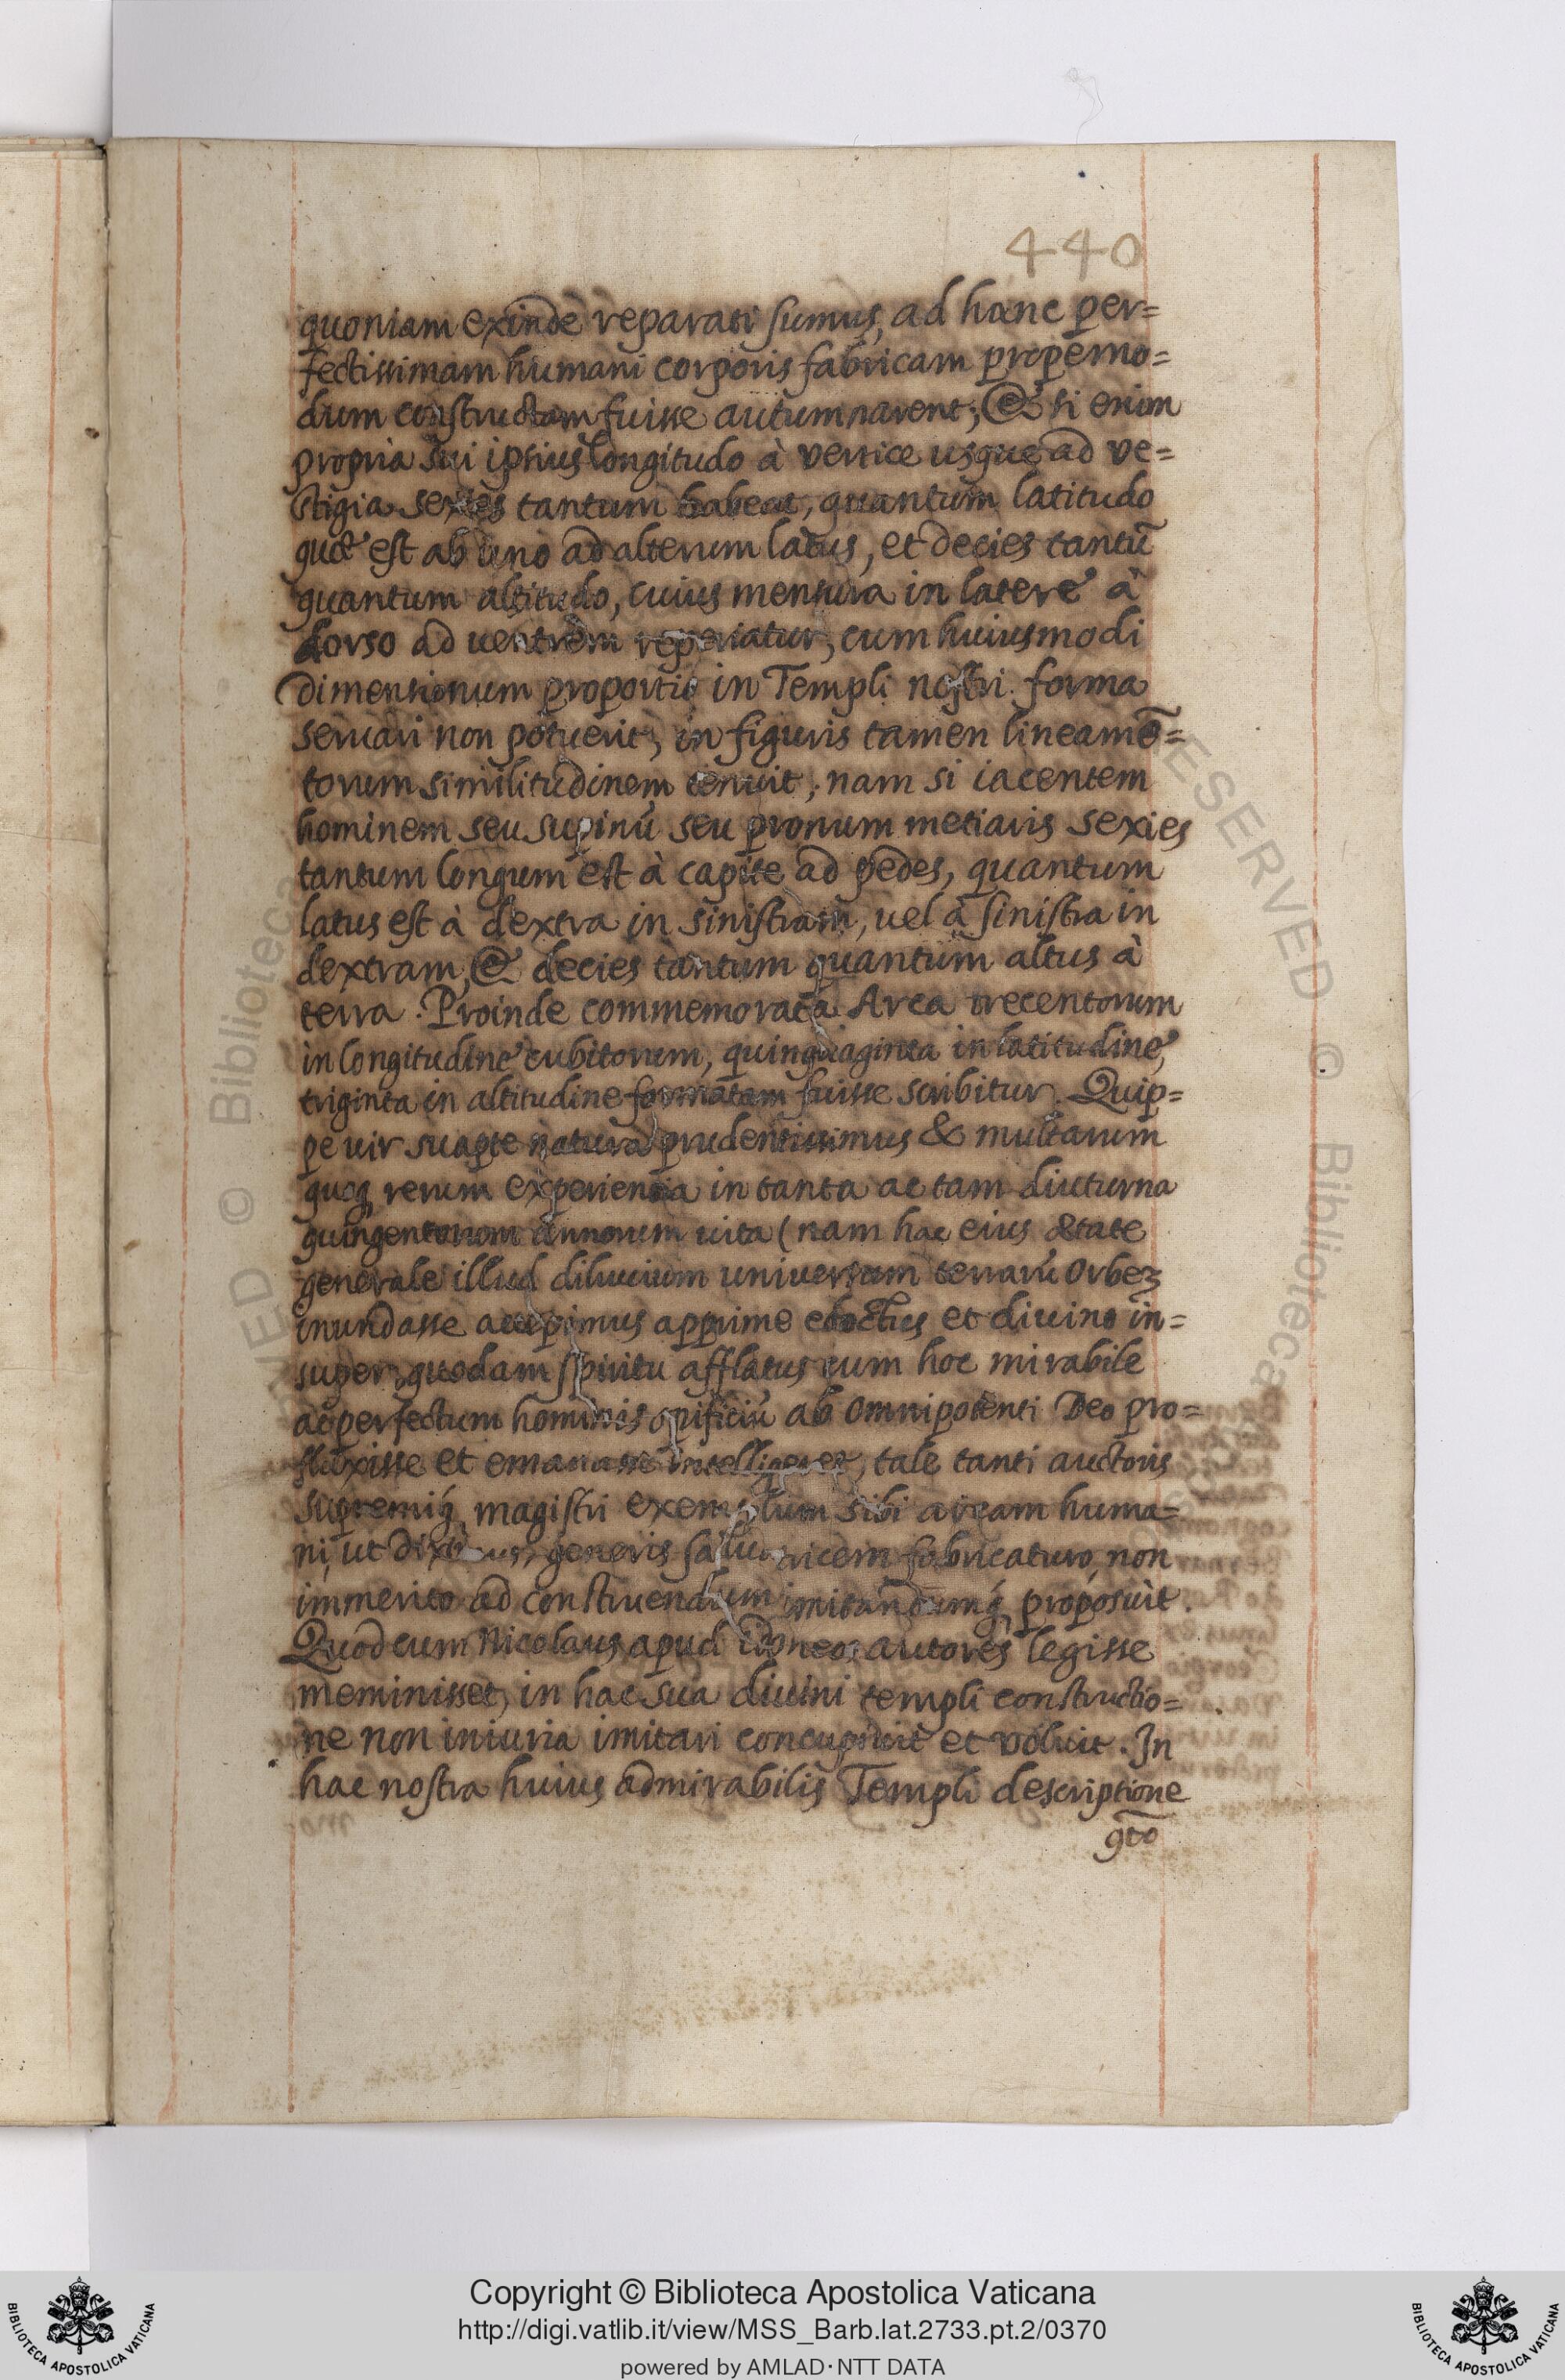 440
quoniam exinde reparati sumus, ad hanc per=
fectissimam humani corporis fabricam propemo=
dum constructam fuisse autumnarent; & si enim
propria sui ipsius longitudo à vertice usque ad ve=
stigia sexies tantum habeat, quantum latitudo
quæ est ab uno ad alterum latus, et decies tantū
quantum altitudo, cuius mensura in latere à
dorso ad uentrem reperiatur, cum huiusmodi
dimensionum proportio in Templi nostri forma
seruari non potuerit, in figuris tamen lineamē=
torum similitudinem tenuit; nam si iacentem
hominem seu supinū seu pronum metiaris sexies
tantum longum est à capite ad pedes, quantum
latus est à dextra in sinistram, uel à sinistra in
dextram, & decies tantum quantum altus à
terra. Proinde commemorata Arca trecentorum
in longitudine cubitorum, quinquaginta in latitudine,
triginta in altitudine formatam fuisse scribitur. Quip=
pe uir suapte natura prudentissimus & multarum
quoq̨ rerum experientia in tanta ac tam diuturna
quingentorum annorum uita (nam hac eius ætate
generale illud diluuium uniuersum terrarū Orbeȝ
inundasse accepimus apprime edoctus et diuino in=
super quodam spiritu afflatus cum hoc mirabile
ac perfectum hominis opificiū ab omnipotenti Deo pro=
fluxisse et emanasse intelligeret, tale tanti auctoris
supremiq́ magistri exemplum sibi arcam huma=
ni, ut diximus, generis saluatricem fabricaturo, non
immerito ad construendum imitandumq́ proposuit.
Quod cum Nicolaus apud idoneos autores legisse
meminisset, in hac sua diuini templi constructio=
ne non iniuria imitari concupiuit et voluit. In
hac nostra huius admirabilis Templi descriptione
Copyright © Biblioteca Apostolica Vaticana
http://digi.vatlib.it/view/MSS_Barb.lat.2733.pt.2/0370
powered by AMLAD·NTT DATA
BIBLIOTECA APOSTOLICA VATICANA
BIBLIOTECA APOSTOLICA VATICANA